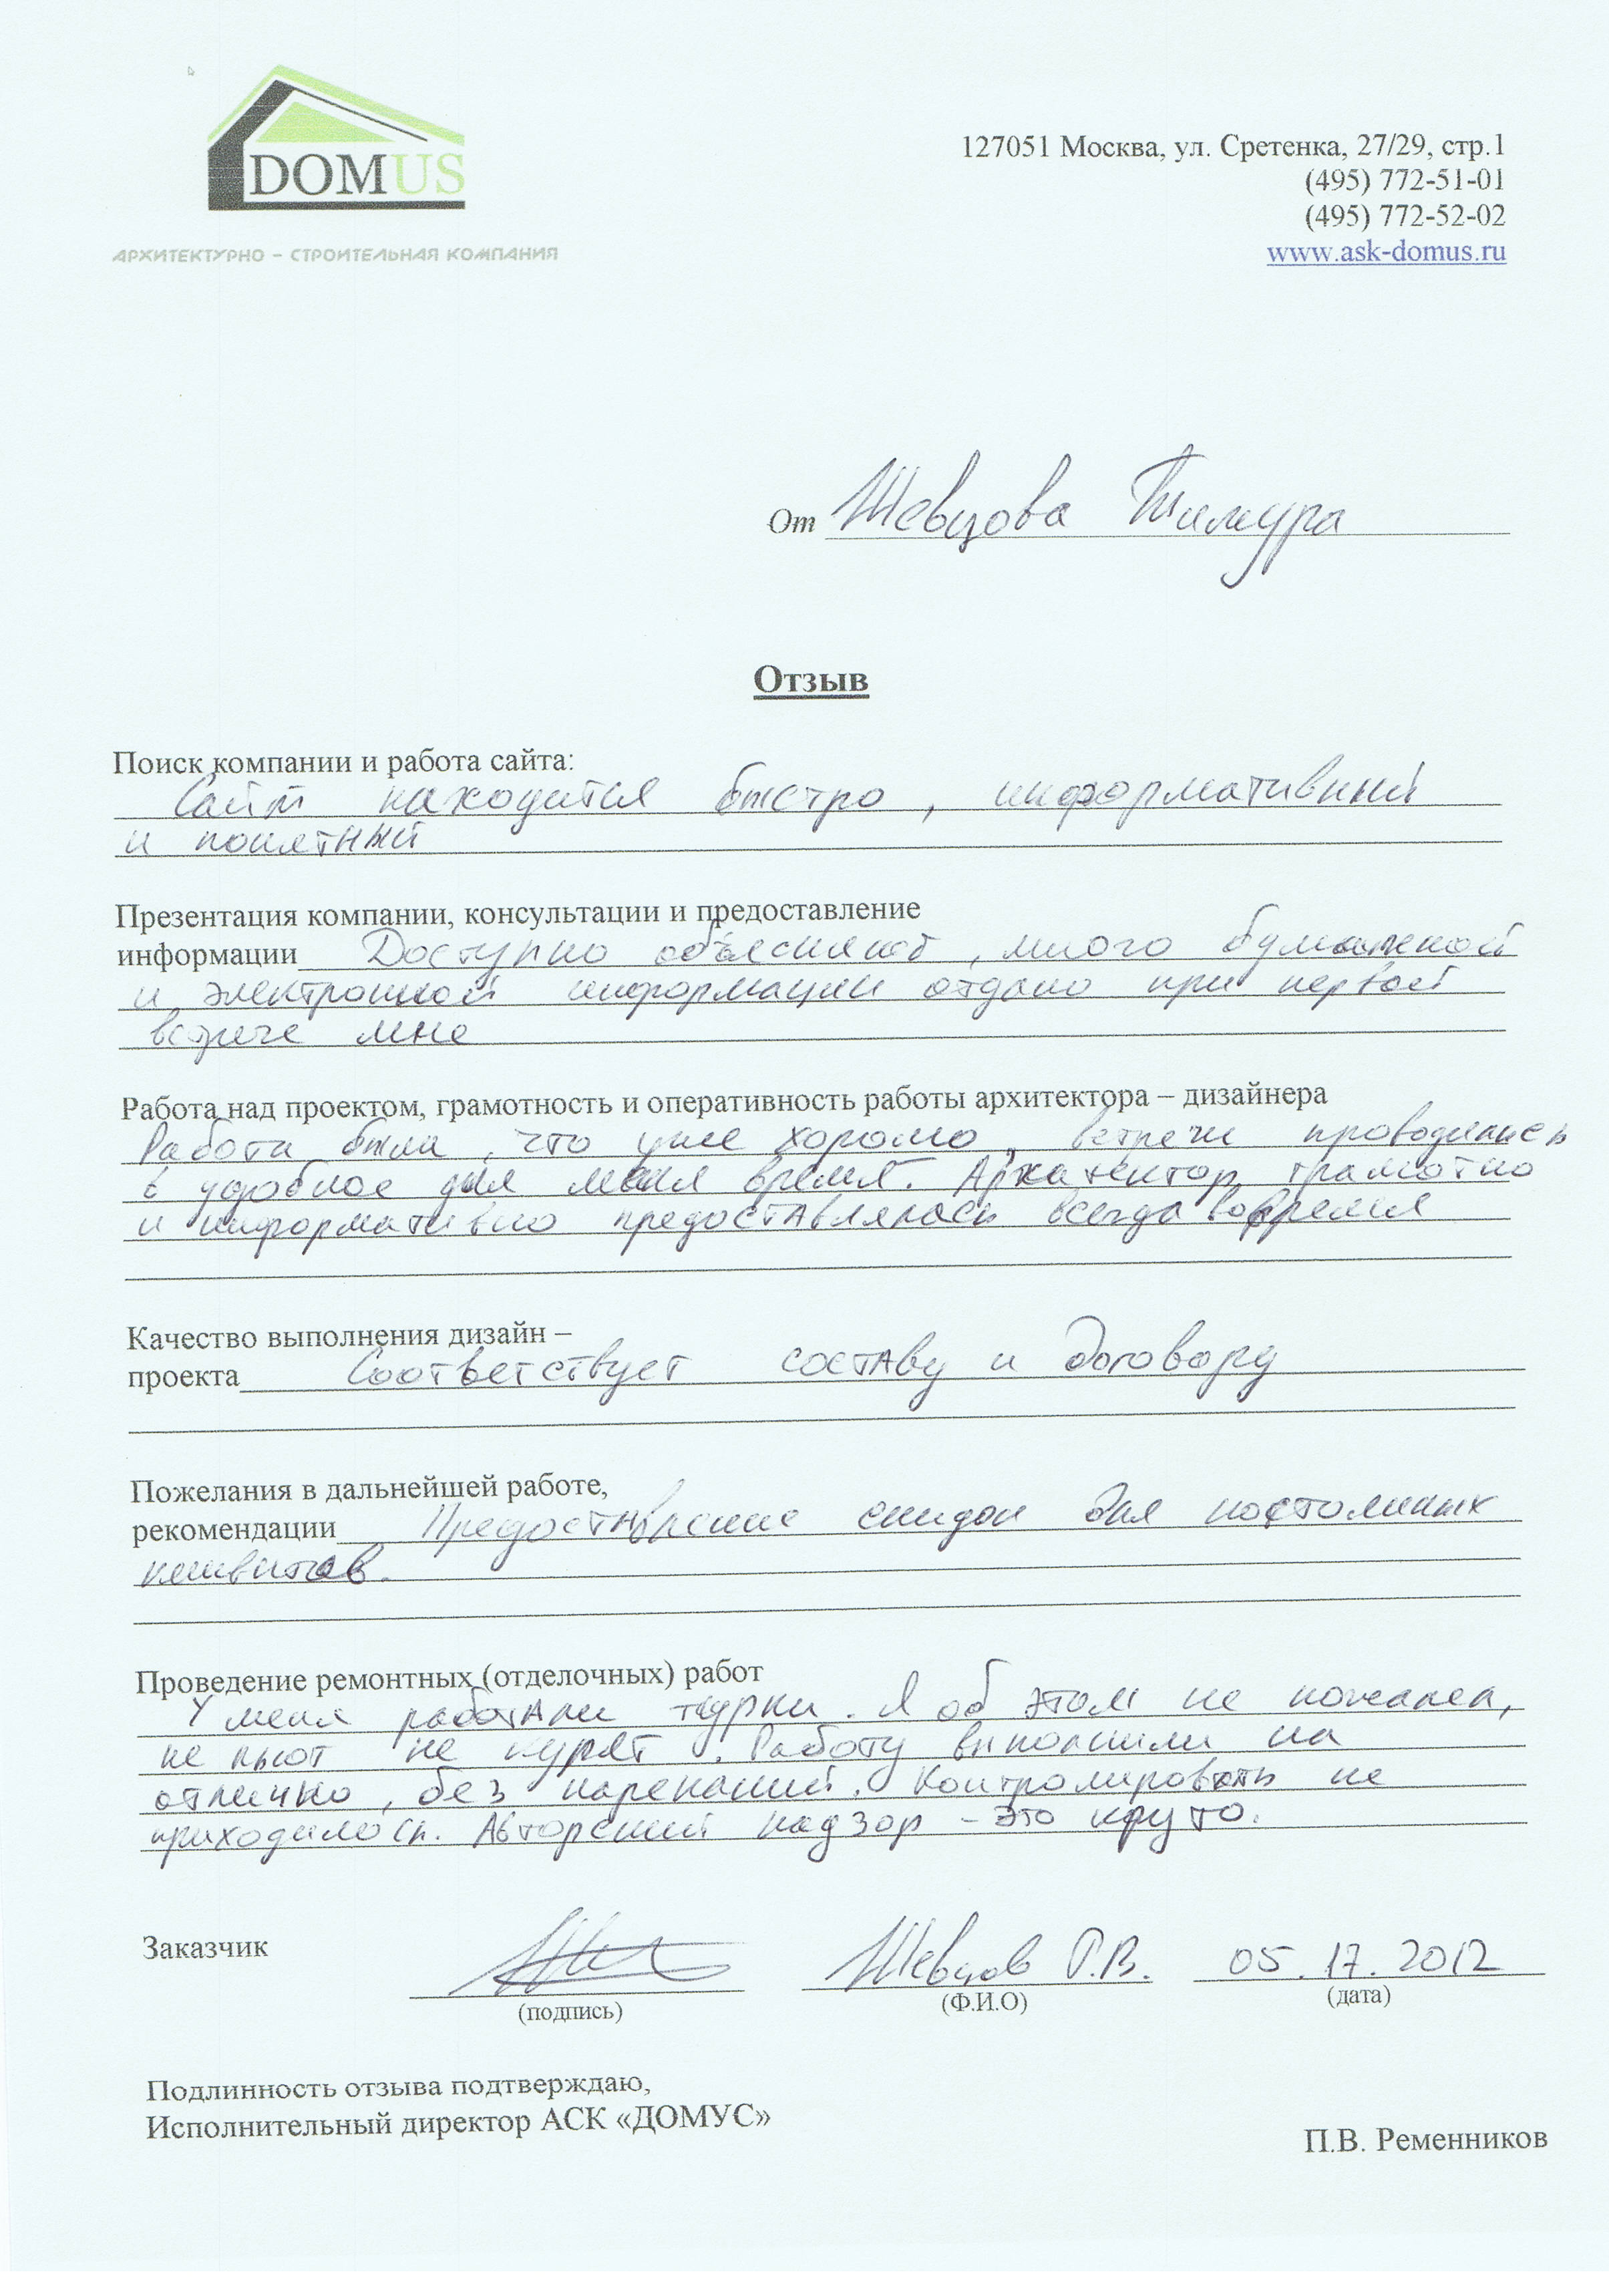 DOMUS
АРХИТЕКТУРНО – СТРОИТЕЛЬНАЯ КОМПАНИЯ
127051 Москва, ул. Сретенка, 27/29, стр.1
(495) 772-51-01
(495) 772-52-02
www.ask-domus.ru
От Шевцова Тимура
Отзыв
Поиск компании и работа сайта:
Сайт находится быстро, информативный
и понятный
Презентация компании, консультации и предоставление
информации Доступно объясняют, много бумажной
и электронной информации отдано при первой
встрече мне
Работа над проектом, грамотность и оперативность работы архитектора – дизайнера
Работа была, что уже хорошо, встречи проводились
в удобное для меня время. Архитектор грамотно
и информативно предоставлялась всегда вовремя
Качество выполнения дизайн –
проекта Соответствует составу и договору
Пожелания в дальнейшей работе,
рекомендации Предоставление скидок для постоянных
Проведение ремонтных (отделочных) работ
У меня работали турки. Я об этом не пожалел,
не пьют не курят. Работу выполнили на
отлично, без нареканий. Контролировать не
приходилось. Авторский надзор – это круто.
Заказчик
Шевцов Т.В. 05.17.2012
(подпись) (Ф.И.О) (дата)
Подлинность отзыва подтверждаю,
Исполнительный директор АСК «ДОМУС»
П.В. Ременников